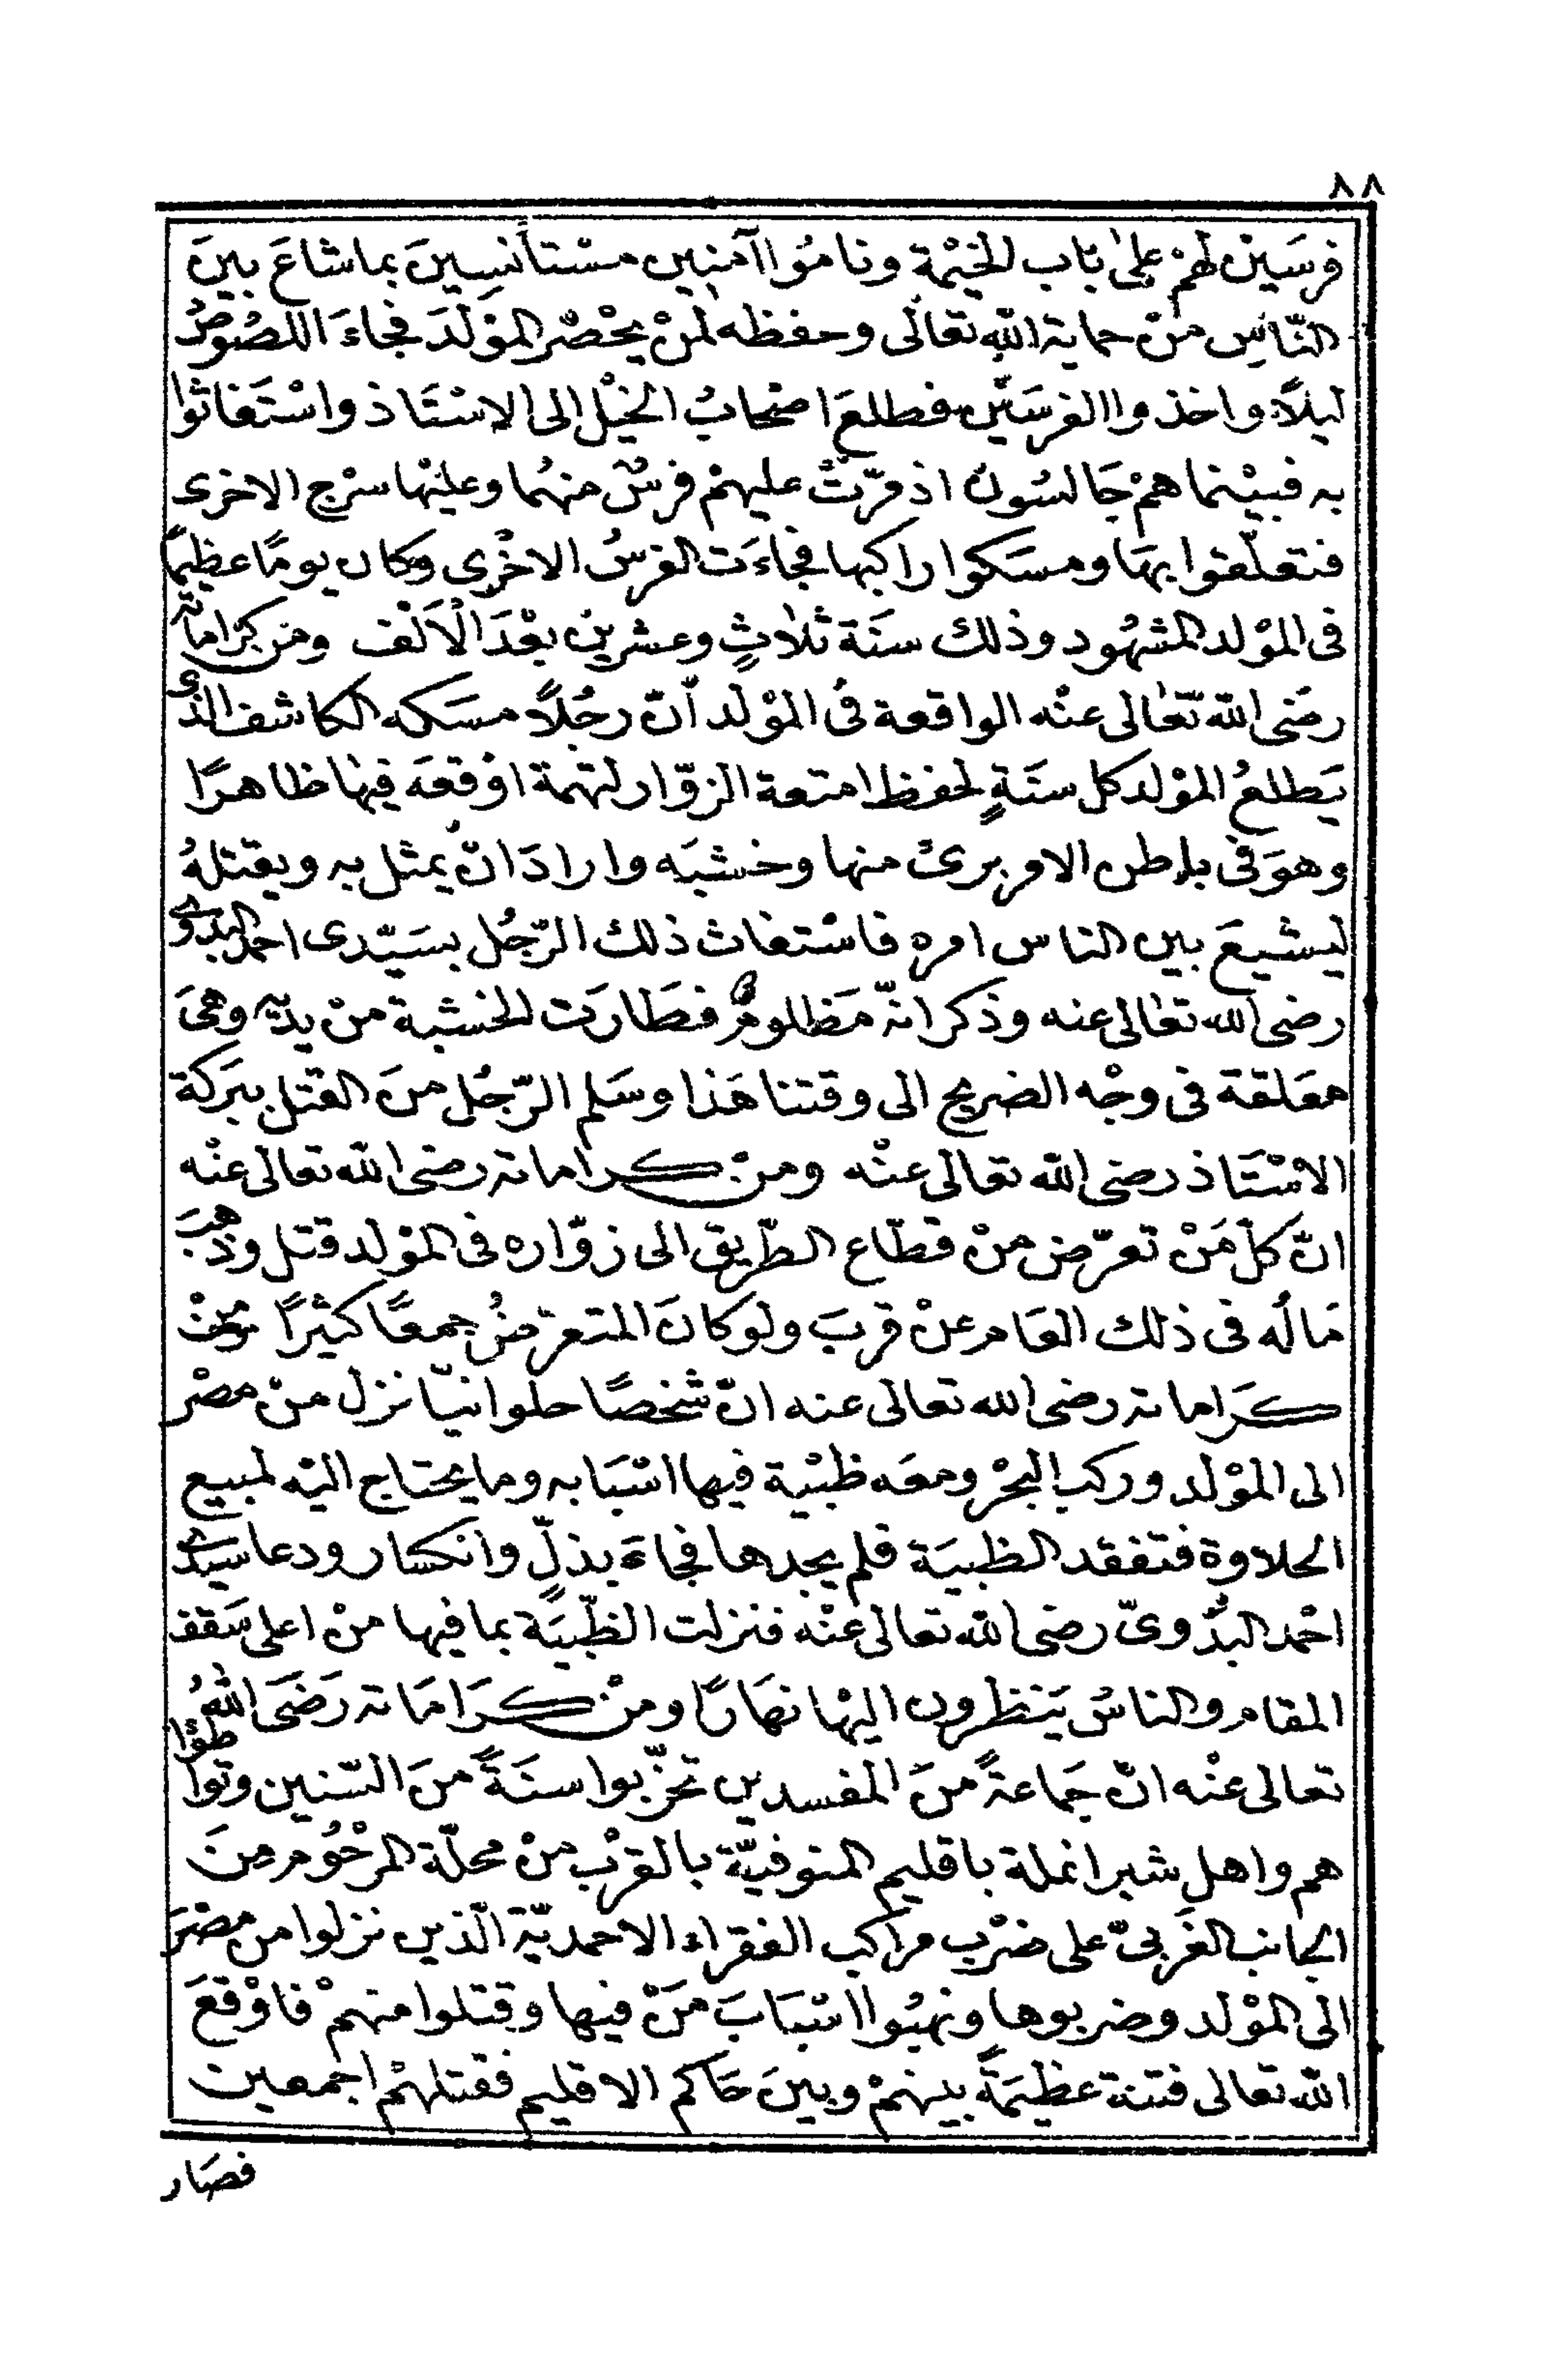 ٨٨
فرسَين لهمْ علىٰ باب الخيْمة ونامُوا آمنين مسْتأنسِينَ بما شاعَ بينَ
النّاسِ منْ حماية اللّهِ تعالى وحفظه لمنْ يحْضر المؤلدَ فجاءَ اللصُوصُ
ليلاً واخذوا الفرسَيْن فطلعَ اصْحابُ الخيْل الى الاسْتَاذ واسْتَغاثوا
به فبيْنما همْ جَالسُون اذ مرّتْ عليهمْ فرسٌ منهُما وعليْها سرْج الاخرى
فتعلّقوا بهَا ومسَكوا راكبها فجاءَت الفرسُ الاخْرى وكان يومًا عظيمًا
فى المؤلد المشهُود وذلك سنَة ثلاثٍ وعشرين بعْدَ الْاَلْف ومن كرَاماته
رضَى اللّه تعَالى عنْه الواقعة فى المؤلد انّ رجُلاً مسَكه الكاشف الذى
يَطلعُ المؤلد كل سنَةٍ لحفظ امتعة الزوّار لتهمة اوْقعَه فيها ظاهرًا
وهوَ فى باطن الامر برئ منها وخشبَه وارادَ انْ يمثل به ويقتلهُ
ليشيعَ بين الناس امره فاسْتغاث ذلك الرّجُل بسَيّدى احمد البدوى
رضى الله تعَالى عنه وذكر انّه مَظلومٌ فطَارَت الخشبة منْ يديْه وهىَ
معَلقة فى وجْه الضريح الى وقتنا هَذا وسَلم الرّجُل منَ القتْل ببَركة
الاسْتَاذ رضى اللّه تعالى عنْه ومنْ كراماته رضى اللّه تعالى عنْه
انّ كلّ مَنْ تعرّض منْ قطّاع الطّريق الى زوّاره فى المؤلد قتل وذهبَ
مَالُه فى ذلك العَام عنْ قربَ ولو كانَ المتعرّضُ جمعًا كثيرًا ومنْ
كرَاماته رضى الله تعالى عنه انّ شخصًا حلوانيّا نزل منْ مصْر
الى المؤلد وركب البحْر ومعَه ظبْية فيها اسْبَابه وما يحتاج اليْه لمبيع
الحلاوة فتفقد الظبيَة فلم يجدها فجاءَ بذلّ وانكسار ودعا سيدى
احْمد البدْوىّ رضى اللّه تعالى عنْه فنزلت الظّبيَة بما فيها منْ اعلى سَقف
المقام والناسُ يَنظرون اليْها نهَارًا ومنْ كرَامَاته رَضَى اللّهُ
تعالى عنْه انّ جَماعةً منَ المفسدين تحزّبوا سنَةً منَ السّنين وتواطؤا
هم واهل شبرا نملة باقليم المنوفيّة بالقرْب منْ محلّة المرْحُوم منَ
الجانب الغَربىّ على ضرْب مراكب الفقراء الاحمديّة الّذين نزلوا من مصْرَ
الى المؤلد وضربوها ونهبُوا اسْبَابَ مَنْ فيها وقتلوا منهمْ فاوْقعَ
اللّه تعالى فتنة عظيمَةً بينهمْ وبينَ حَاكم الاقليم فقتلهُمْ اجمعين
فصَار